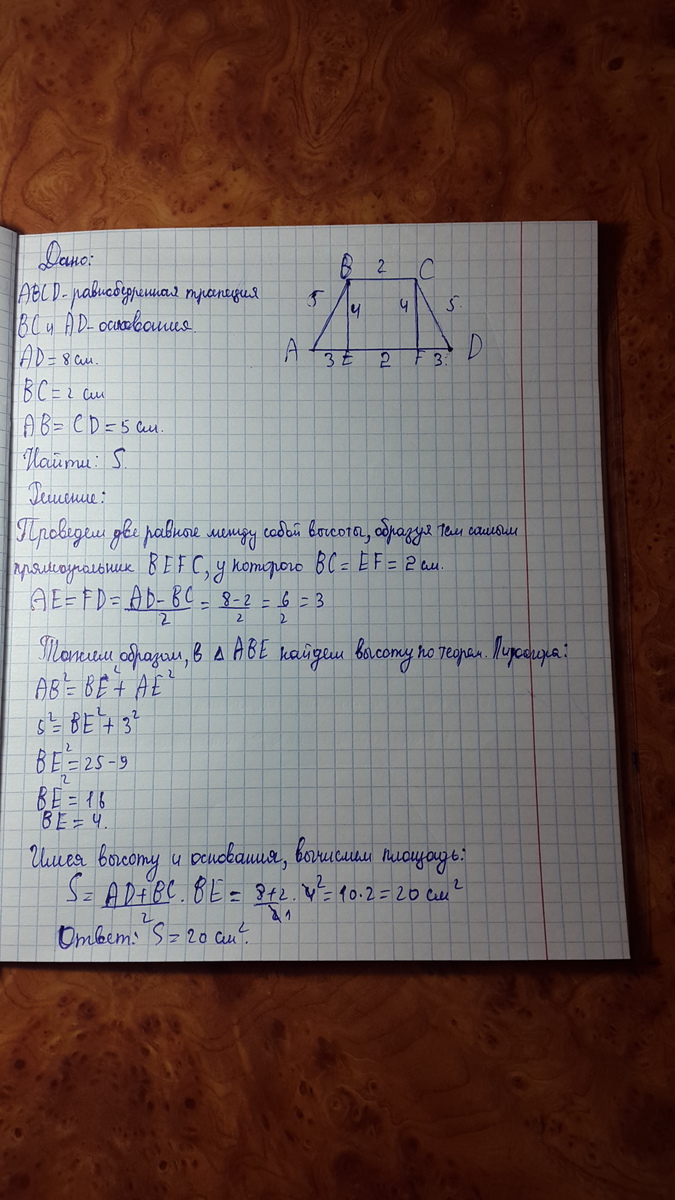 Дано:
ABCD - равнобедренная трапеция
BC и AD - основания.
AD = 8 см.
BC = 2 см
AB = CD = 5 см.
Найти: S.
B 2 C
5 4 4 5
A 3 E 2 F 3 D
Решение:
Проведем две равные между собой высоты, образуя тем самым
прямоугольник BEFC, у которого BC = EF = 2 см.
AE = FD = \frac{AD - BC}{2} = \frac{8 - 2}{2} = \frac{6}{2} = 3
образом, в △ ABE найдем высоту по теорем. Пифагора:
AB² = BE² + AE²
5² = BE² + 3²
BE² = 25 - 9
BE² = 16
BE = 4.
Имея высоту и основания, вычислим площадь:
S = \frac{AD + BC}{2} · BE = \frac{8 + 2}{2 1} · 4 ² = 10 · 2 = 20 см²
Ответ: S = 20 см².